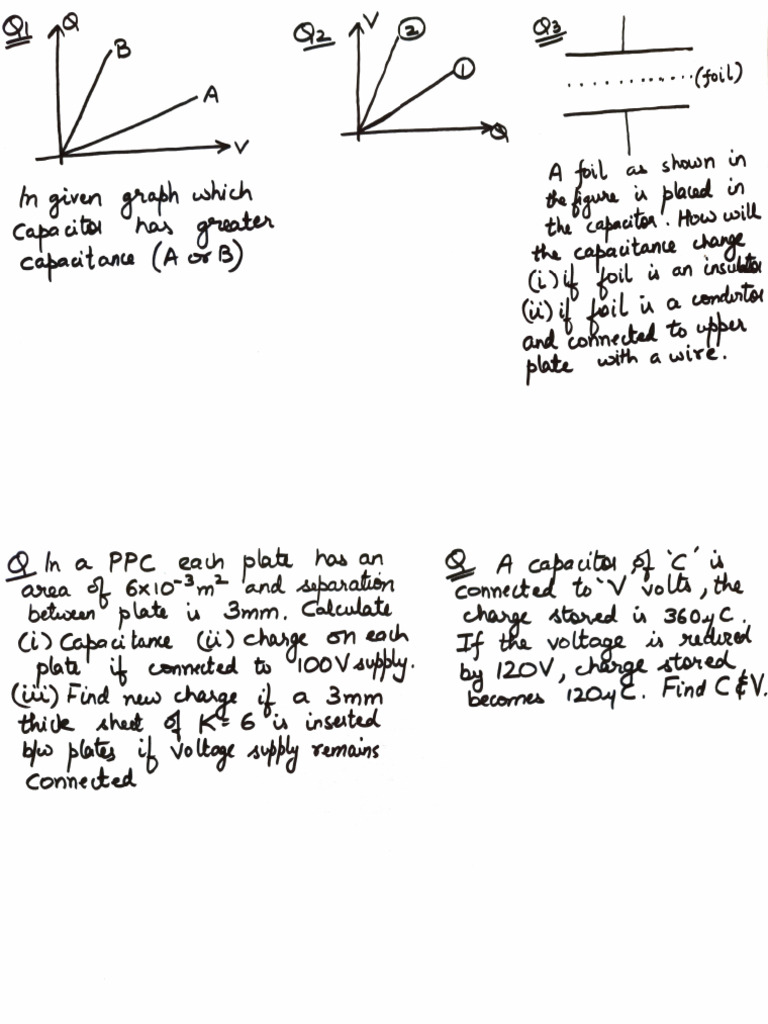 Q1
Q
B
A
V
In given graph which
Capacitor has greater
capacitance (A or B)
Q2
V
2
1
Q
Q3
(foil)
A foil as shown in
the figure is placed in
the capacitor. How will
the capacitance change
(i) if foil is an insulator
(ii) if foil is a conductor
and connected to upper
plate with a wire.
Q In a PPC each plate has an
area of 6x10⁻³m² and separation
between plate is 3mm. Calculate
(i) Capacitance (ii) charge on each
plate if connected to 100V supply.
(iii) Find new charge if a 3mm
thick sheet of K=6 is inserted
b/w plates if Voltage supply remains
connected
Q A capacitor of 'C' is
connected to 'V' volts, the
charge stored is 360μC.
If the voltage is reduced
by 120V, charge stored
becomes 120μC. Find C & V.